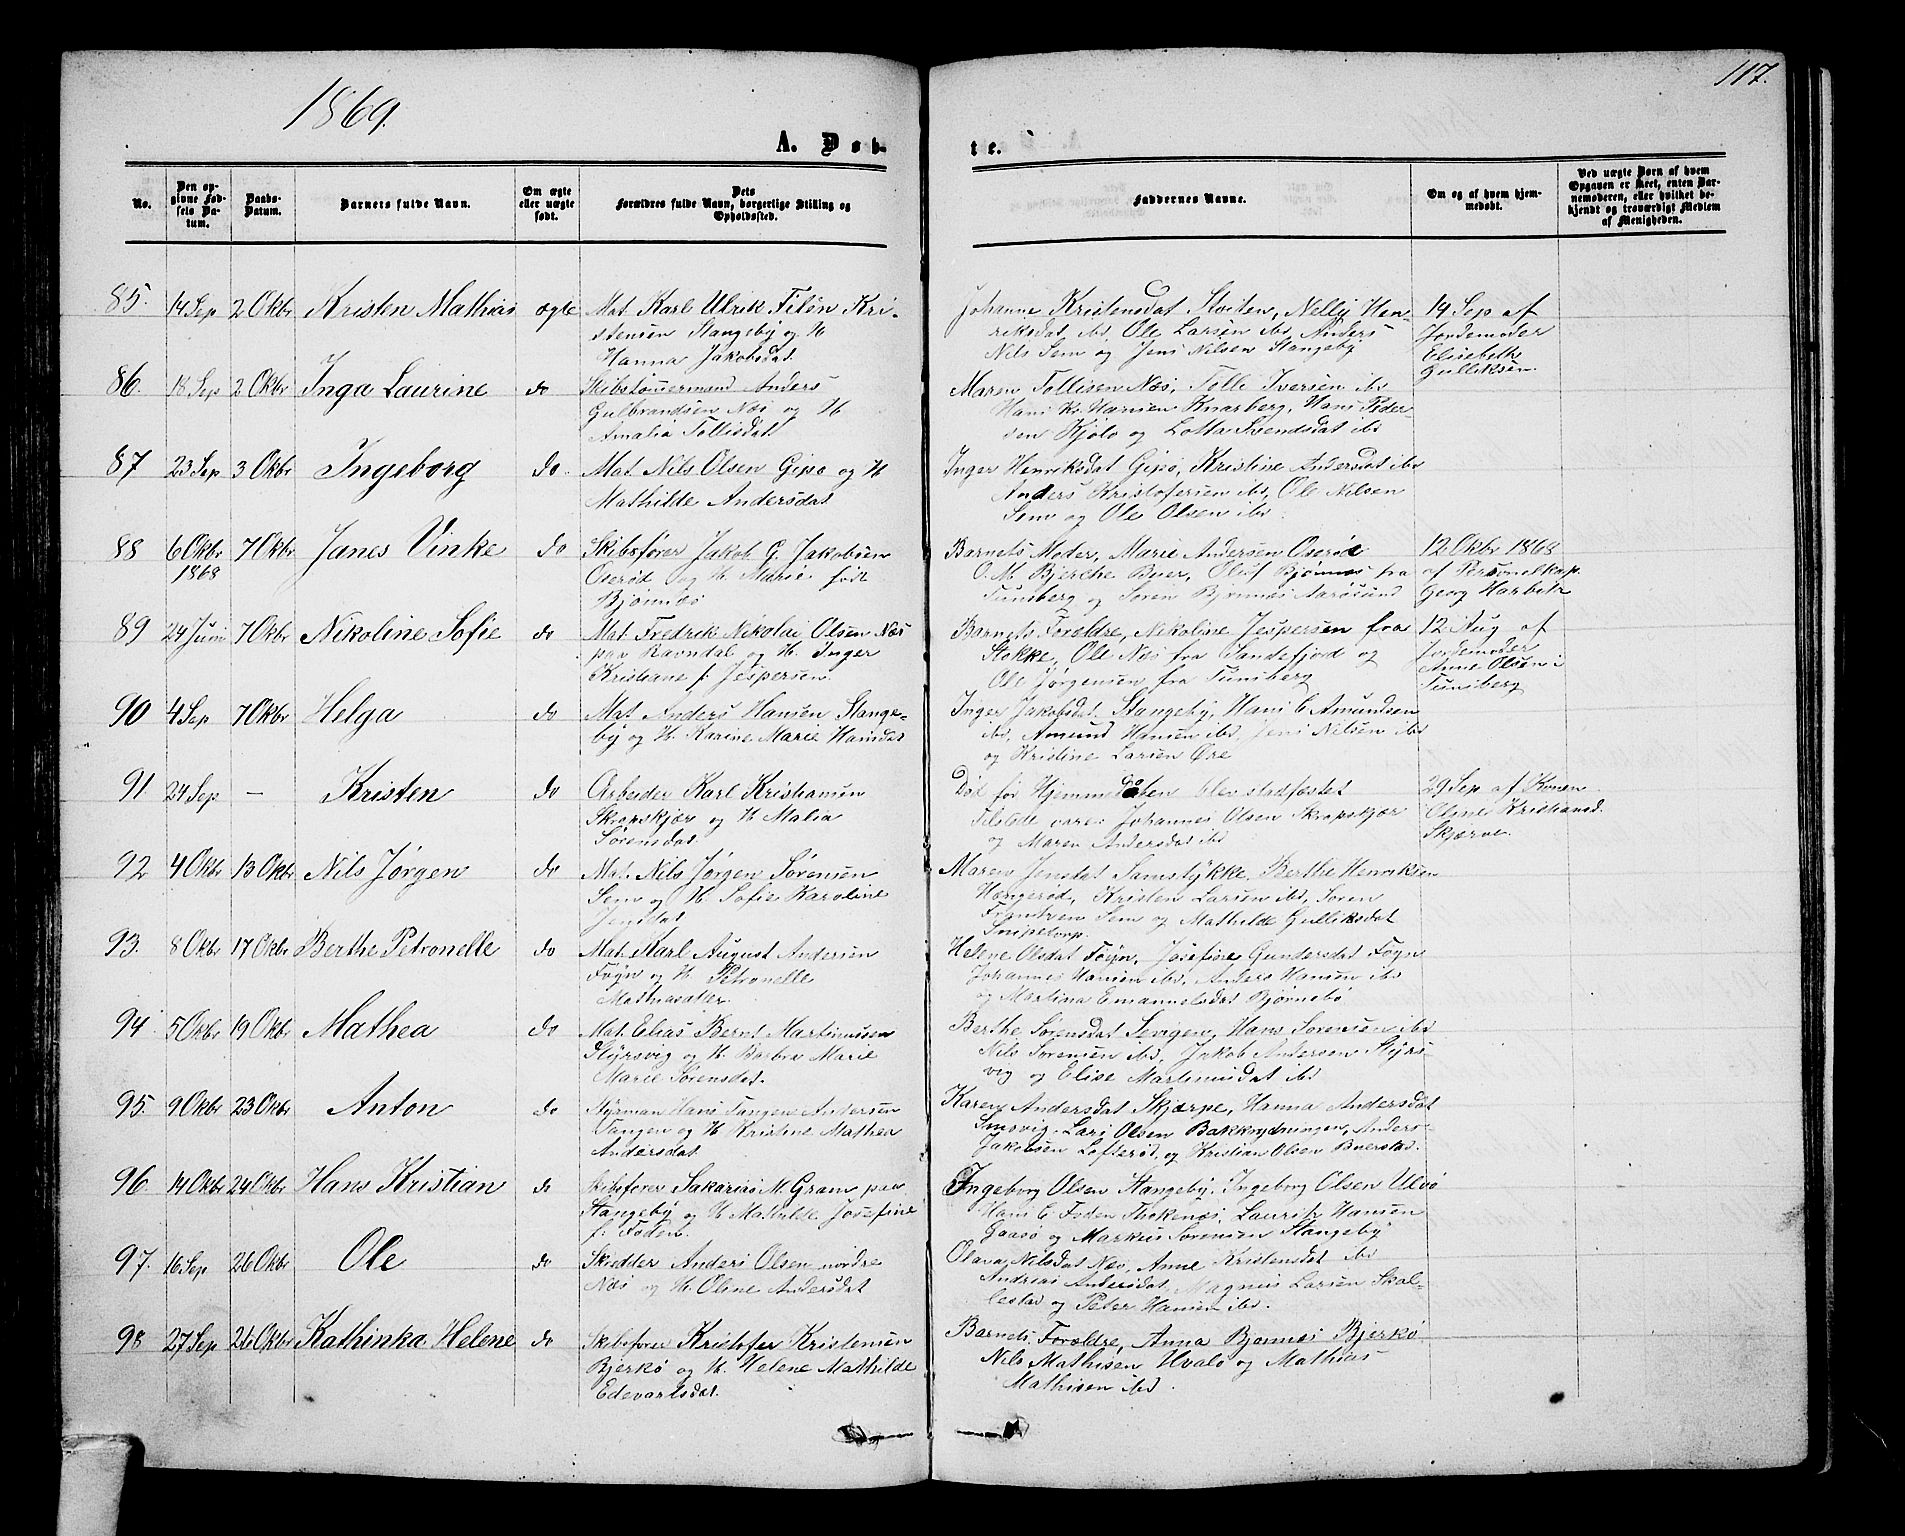 1869.
117.
A. Døb-
te.
No.
Den op-
givne Fød-
sels Da-
tum.
Daabs-
Datum.
Barnets fulde Navn.
Om ægte
eller uægte
født.
Dets
Forældres fulde Navn, borgerlige Stilling og
Opholdssted.
Faddernes Navne.
Om og af hvem hjem-
medøbt.
Ved uægte Børn af hvem
Opgaven er skeet, enten Bar-
nemoderen, eller hvilket be-
kjendt og troværdigt Medlem
af Menigheden.
85. 14 Sep 2 Oktbr Kristen Mathias ægte
Mat. Karl Ulrik Kri-
stensen Stangeby og H
Hanna Jakobsdat.
Johanne Kristensdat Stoiten, Nelly Hen-
reksdat ibd, Ole Larsen ibd, Anders
Nils Sem og Jens Nilsen Stangeby
14 Sep af
Jordemoder
Elisebethe
Gulliksen.
86. 18 Sep 2 Oktbr Inga Laurine do
Skibstømermand Anders
Gulbrandsen Næs og H
Amalia Tollisdat.
Maren Tollisen Næs, Tolli Iversen ibd
Hans Kr. Hansen Knarberg, Hans Peder-
sen Kjølø og Lotta Svendsdat ibd
87 23 Sep 3 Oktbr Ingeborg do.
Mat. Nils Olsen Gipø og H
Mathilde Andersdat
Inger Henriksdat Gipø, Kristine Andersdat ibd
Anders Kristofersen ibd, Ole Nilsen
Sem og Ole Olsen ibd.
88 6 Oktbr 7 Oktbr Janes Vinke do
1868
Skibsfører Jakob G. Jakobsen
Oserød og H. Marie født
Bjønnes
Barnets Moder, Marie Andersen Oserød
O. M. Bjerche Buer, Oluf Bjønnes fra
Tunsberg og Søren Bjønnes Aarøsund
12 Oktbr 1868
af Personelkap.
Georg Harbitz
89 24 Juni 7 Oktbr Nikoline Sofie do
Mat. Fredrik Nikolai Olsen Næs
paa Ravndal og H. Inger
Kristiane f: Jespersen.
Barnets Forældre, Nikoline Jespersen fra
Stokke, Ole Næs fra Sandefjord og
Ole Jørgensen fra Tunsberg
12 Aug af
Jordemoder
Anne Olsen i
Tunsberg
90 4 Sep 7 Oktbr Helga do
Mat. Anders Hansen Stange-
by og H. Karine Marie Hansdat
Inger Jakobsdat. Stangeby, Hans C Amundsen
ibd, Amund Hansen ibd, Jens Nilsen ibd
og Kristine Larsen Øre
91 24 Sep — Kristen do
Arbeider Karl Kristiansen
Skrapskjær og H Malia
Sørensdat.
Død før Hjemmedaaben blev stadfæstet
Tilstede vare: Johannes Olsen Skrapskjær
og Maren Andersdat ibd
29 Sep af Konen
Oline Kristiansd.
Skjærve.
92 4 Oktbr 13 Oktbr Nils Jørgen do
Mat. Nils Jørgen Sørensen
Sem og H Sofie Karoline
Jensdat
Maren Jensdat Samstykke, Berthe Henriksen
Hængerød, Kristen Larsen ibd, Søren
Frantzen Sem og Mathilde Gulliksdat
Snipetorp.
93. 8 Oktbr 17 Oktbr Berthe Petronelle do
Mat. Karl August Andersen
Føyn og H. Petronelle
Mathiasdatter.
Helene Olsdat Føyn, Josefine Gundersdat Føyn
Johannes Hansen ibd, Anders Hansen ibd
og Martina Emanuelsdat Bjørnebø
94 5 Oktbr 19 Oktbr Mathea do
Mat. Elias Bernt Martinussen
Styrsvig og H. Barbra Marie
Marie Sørensdat.
Berthe Sørensdat Sevigen, Hans Sørensen ibd
Nils Sørensen ibd, Jakob Andersen Styrs-
vig og Elise Martinusdat ibd
95. 9 Oktbr 23 Oktbr Anton do
Styrman Hans Tangen Andersen
Tangen og H Kristine Mathea
Andersdat
Karen Andersdat Skjærpe, Hanna Andersdat
Smøvig. Lars Olsen Bakkrydningen, Anders
Jakobsen Lofterød, og Kristian Olsen Buerstad.
96. 14 Oktbr 24 Oktbr Hans Kristian do
Skibsfører Sakarias M. Gram paa
Stangeby og H Mathilde Josefine
f: Foden.
Ingeborg Olsen Stangeby. Ingeborg Olsen Ulvø
Hans C. Foden Thokenæs, Lauritz Hansen
Gaasø og Markus Sørensen Stangeby
97. 16 Sep 26 Oktbr Ole do
Skredder Anders Olsen nordre
Næs og H. Oline Andersdat
Olava Nilsdat Næs, Anne Kristensdat ibd
Andrias Andersdat, Magnus Larsen Skal-
lestad og Peter Hansen ibd.
98 27 Sep 26 Oktbr Kathinka Helene do
Skibsfører Kristofer Kristensen
Bjerkø og H. Helene Mathilde
Edevartsdat.
Barnets Forældre, Anna Bjønnes Bjerkø
Nils Mathisen Hvalø og Mathias
Mathisen ibd.